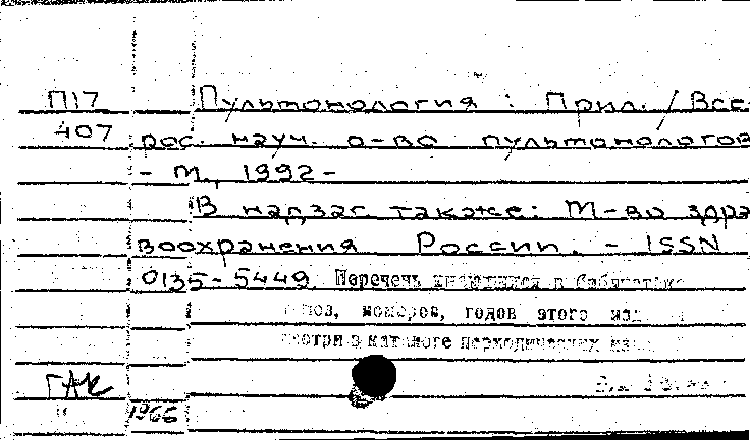 П17 Пульмонология : Прил. / Все
407 рос. науч. о-во пульмонологов
- М., 1992 -
В надзаг. также: М-во здра
воохранения России. - ISSN
0135-5449 Перечень имеющихся в библиотеке
номеров, годов этого
смотри в каталоге периодических
ГАК
1966